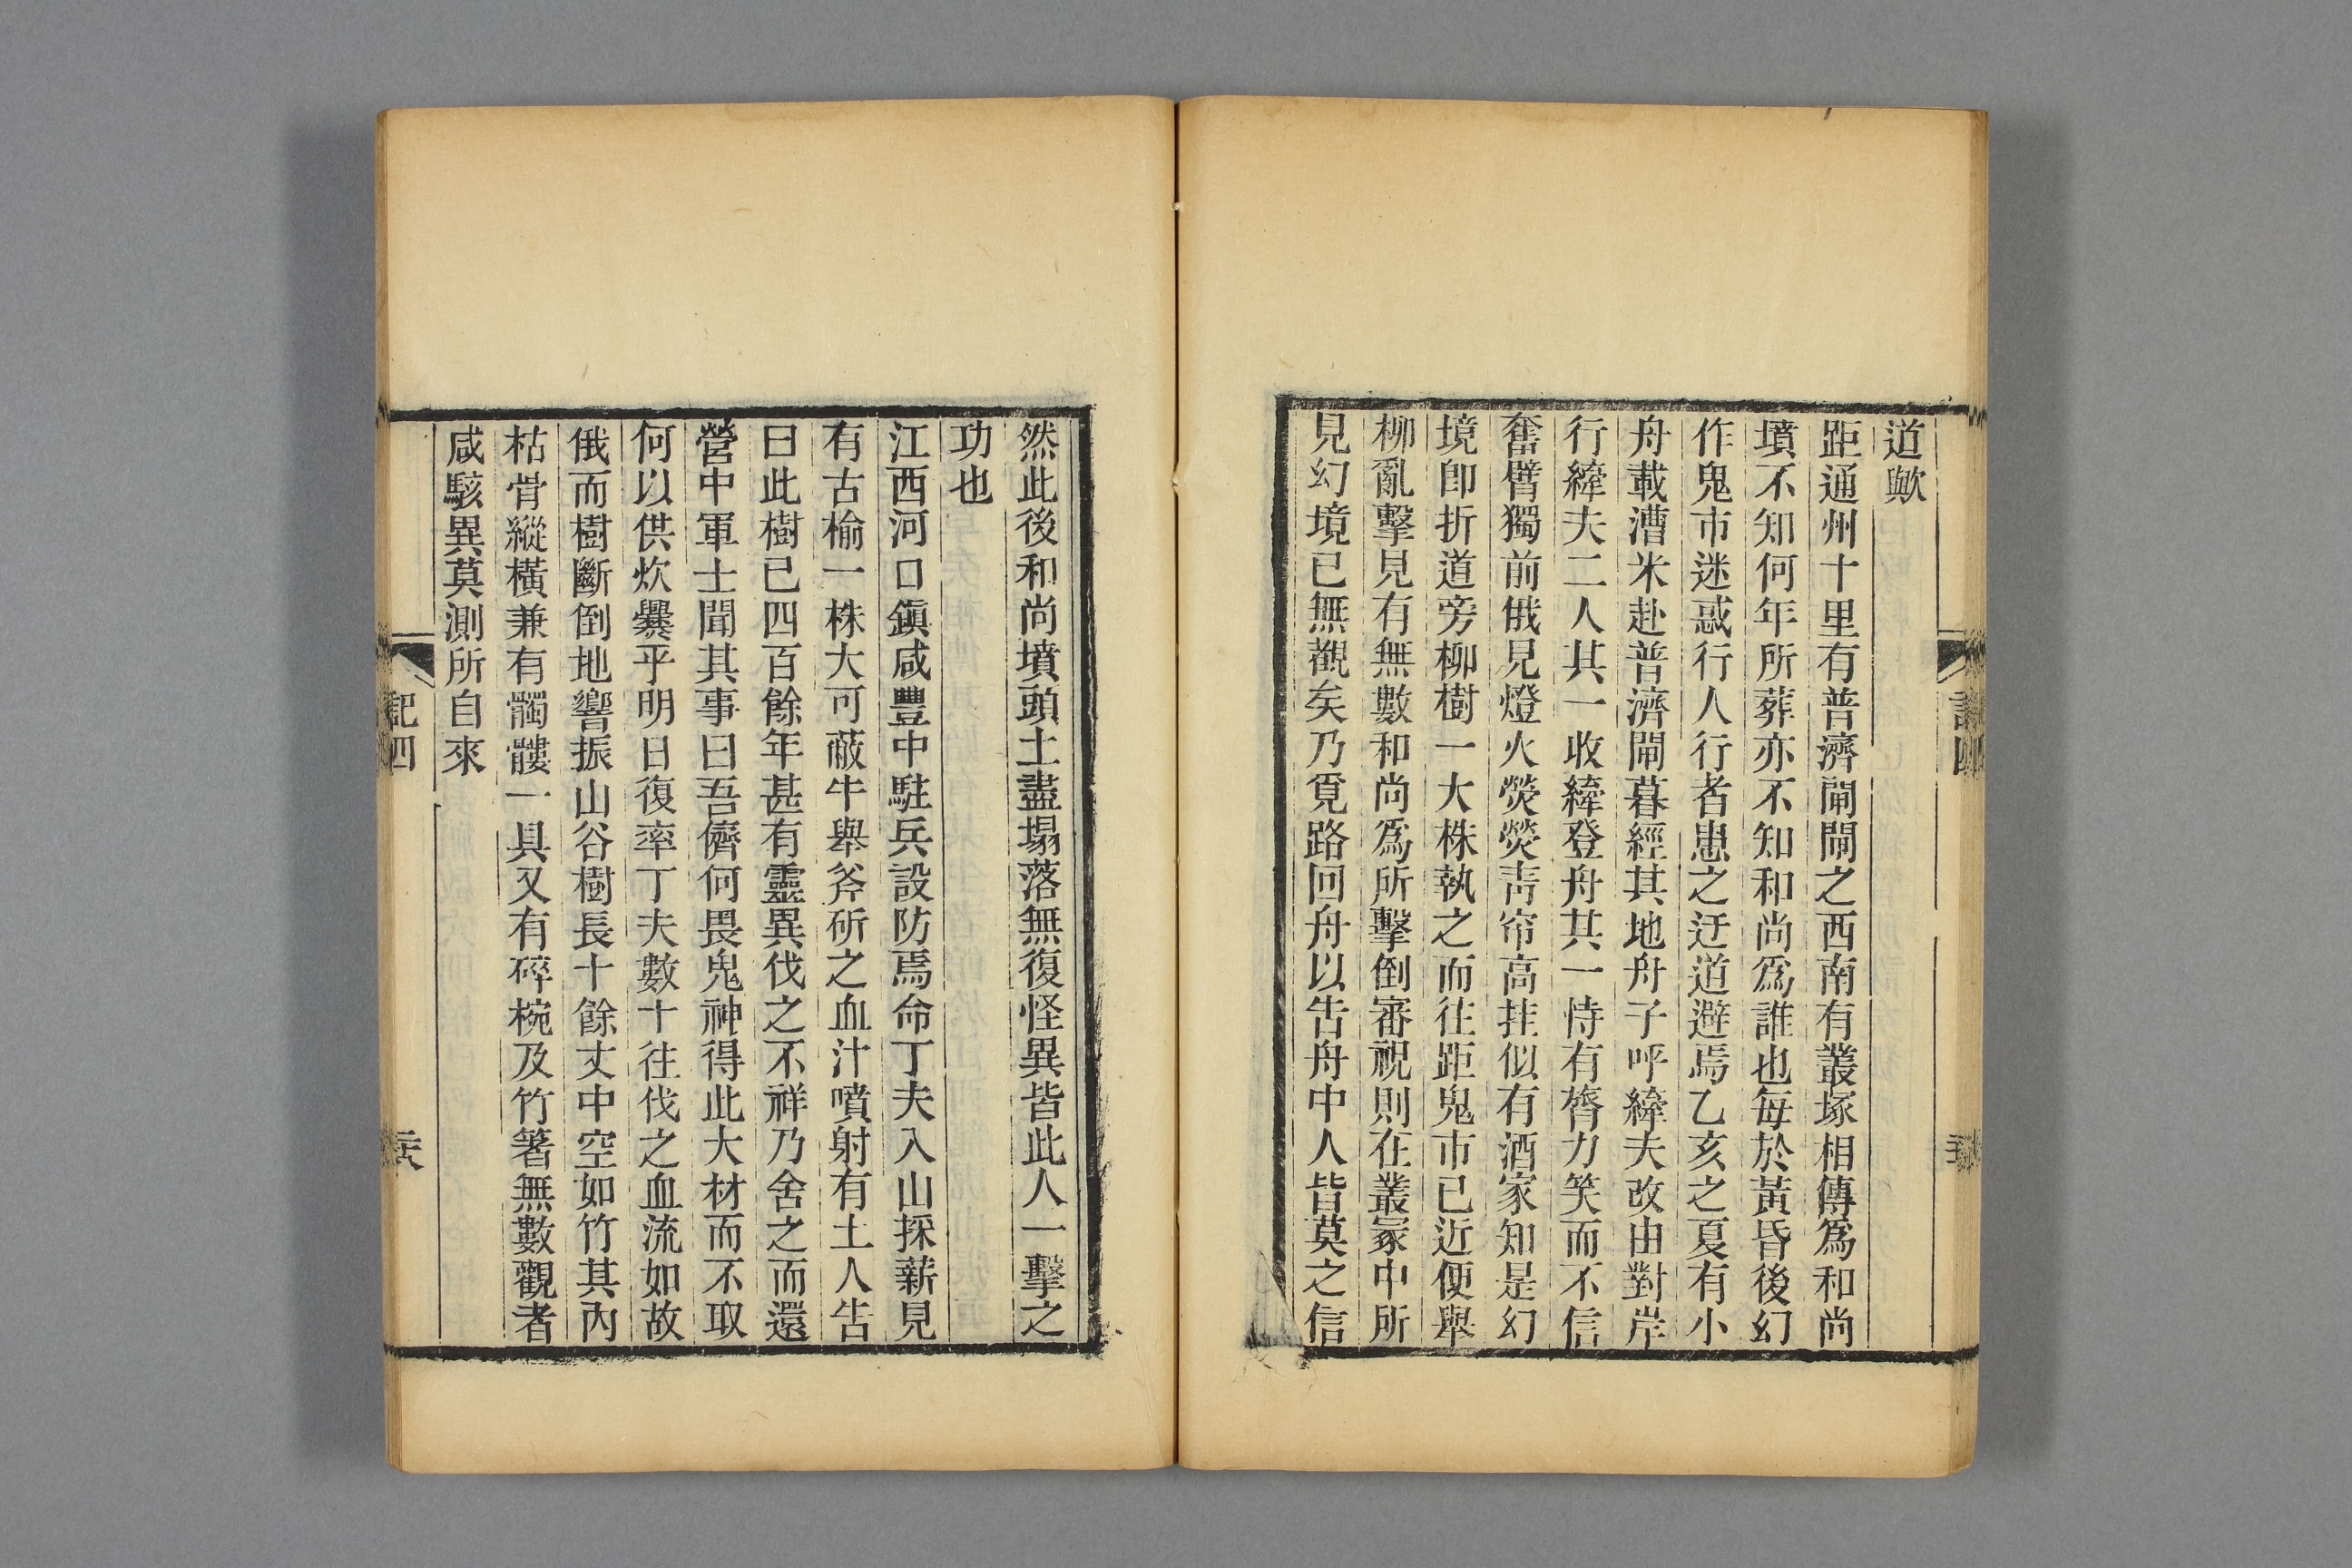 道歟
距通州十里有普濟閘閘之西南有叢塚相傳爲和尚
墳不知何年所葬亦不知和尚爲誰也每於黃昏後幻
作鬼市迷惑行人行者患之迂道避焉乙亥之夏有小
舟載漕米赴普濟閘暮經其地舟子呼縴夫改由對岸
行縴夫二人其一收縴登舟其一恃有膂力笑而不信
奮臂獨前俄見燈火熒熒靑帘高挂似有酒家知是幻
境卽折道旁柳樹一大株執之而往距鬼市已近便舉
柳亂擊見有無數和尚爲所擊倒審視則在叢冢中所
見幻境已無覩矣乃覓路回舟以吿舟中人皆莫之信
然此後和尚墳頭土盡塌落無復怪異皆此人一擊之
功也
江西河口鎭咸豐中駐兵設防焉命丁夫入山採薪見
有古榆一株大可蔽牛舉斧斫之血汁噴射有土人吿
曰此樹已四百餘年甚有靈異伐之不祥乃舍之而還
營中軍士聞其事曰吾儕何畏鬼神得此大材而不取
何以供炊爨乎明日復率丁夫數十往伐之血流如故
俄而樹斷倒地響振山谷樹長十餘丈中空如竹其內
枯骨縱橫兼有髑髏一具又有碎椀及竹箸無數觀者
咸駭異莫測所自來
記四